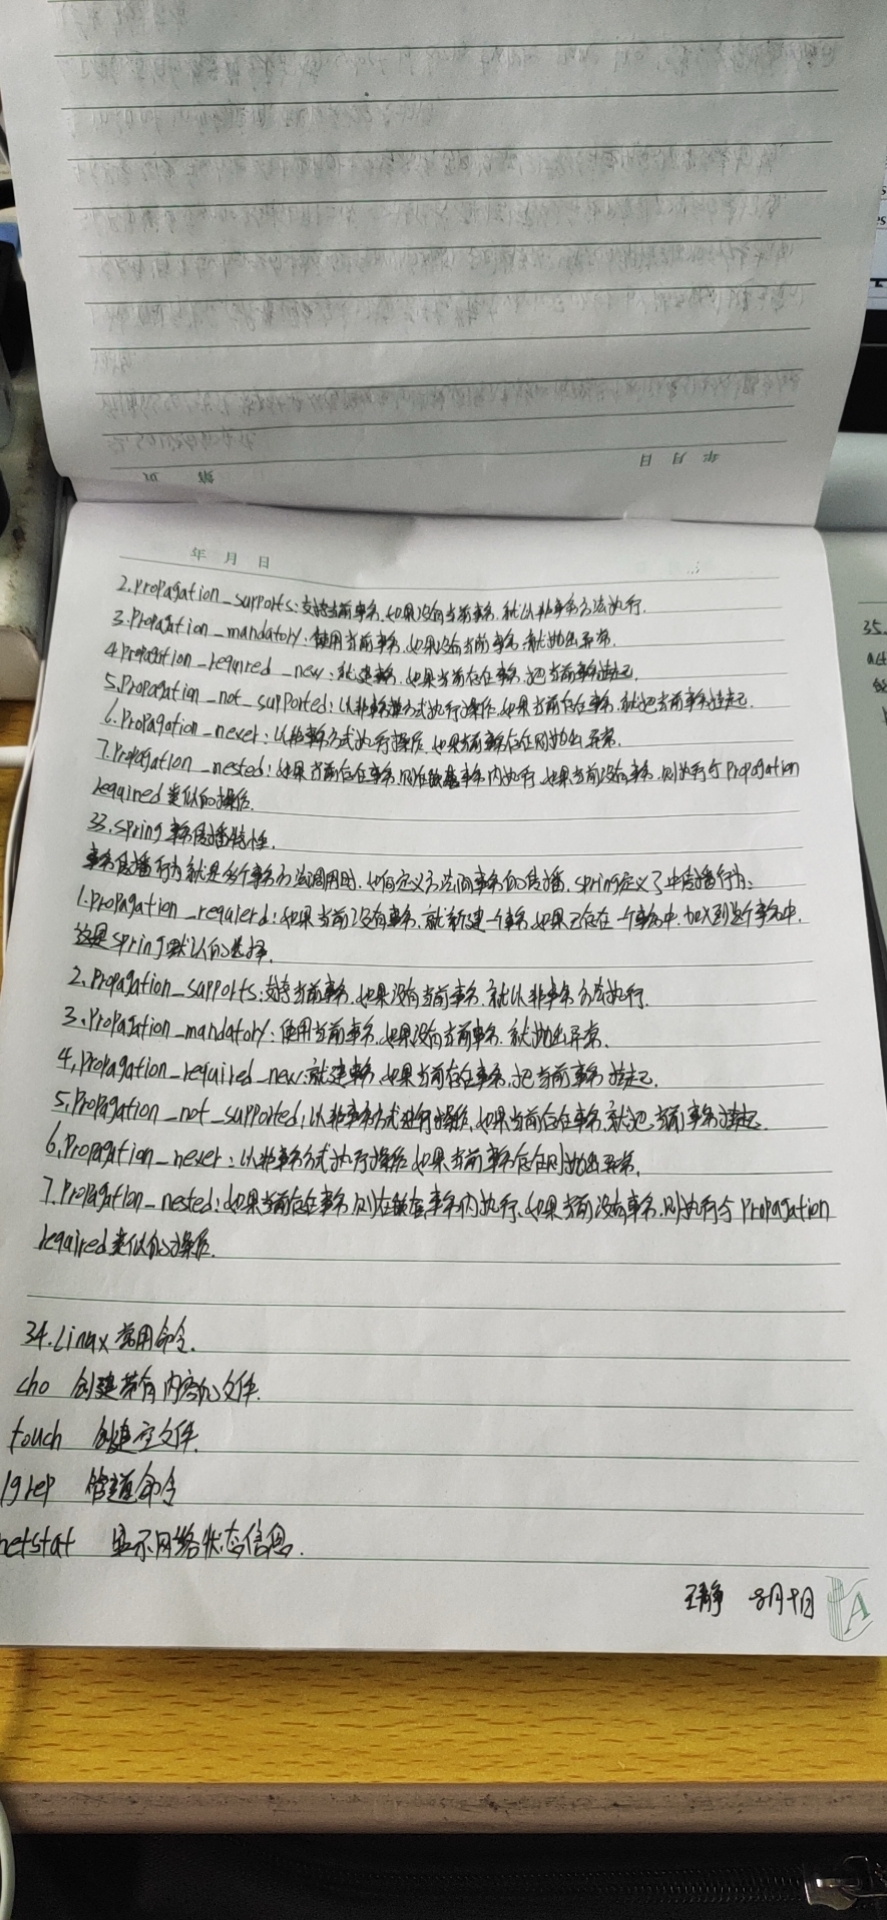 年 月 日
2.Propagation_supports:支持当前事务,如果没有当前事务,就以非事务方法执行.
3.Propagation_mandatory:使用当前事务,如果没有当前事务,就抛出异常.
4.Propagation_required_new:就建事务,如果当前存在事务,把当前事务挂起.
5.Propagation_not_supported:以非事务方式执行操作,如果当前存在事务,就把当前事务挂起.
6.Propagation_never:以非事务方式执行操作,如果当前事务存在则抛出异常.
7.Propagation_nested:如果当前存在事务,则在嵌套事务内执行,如果当前没有事务,则执行与Propagation
required类似的操作.
33.spring事务传播特性.
事务传播行为就是多个事务方法调用时,如何定义方法间事务的传播,spring定义了中传播行为:
1.Propagation_requierd:如果当前没有事务,就新建一个事务,如果已存在一个事务中,加入到这个事务中.
这是spring默认的选择.
2.Propagation_supports:支持当前事务,如果没有当前事务,就以非事务方法执行.
3.Propagation_mandatory:使用当前事务,如果没有当前事务,就抛出异常.
4.Propagation_required_new:就建事务,如果当前存在事务,把当前事务挂起.
5.Propagation_not_supported:以非事务方式进行操作,如果当前存在事务,就把当前事务挂起.
6.Propagation_never:以非事务方式执行操作,如果当前事务存在则抛出异常.
7.Propagation_nested:如果当前存在事务,则在嵌套事务内执行,如果当前没有事务,则执行与Propagation
required类似的操作.
34.Linux常用命令.
cho 创建带有内容的文件.
touch 创建空文件.
|grep 管道命令
netstat 显示网络状态信息.
王静 8月十日
35.